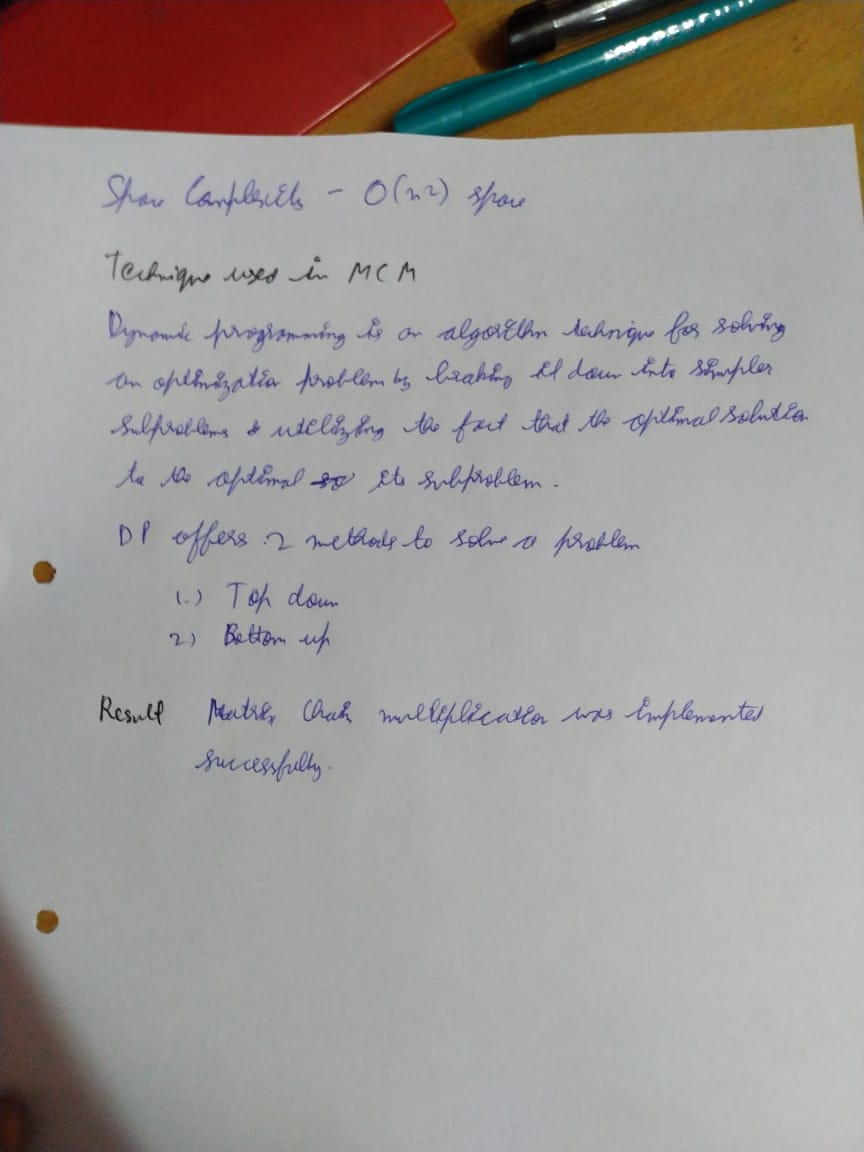 Space Complexity - O(n2) space
Technique used in MCM
Dynamic programming is an algorithm technique for solving
an optimization problem by breaking it down into simpler
subproblems & utilizing the fact that the optimal solution
to the optimal so its subproblem.
DP offers 2 methods to solve a problem
1.) Top down
2) Bottom up
Result Matrix Chain multiplication was implemented
successfully.